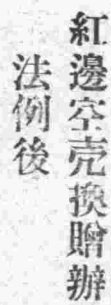 紅邊空壳換贈辦
法例後